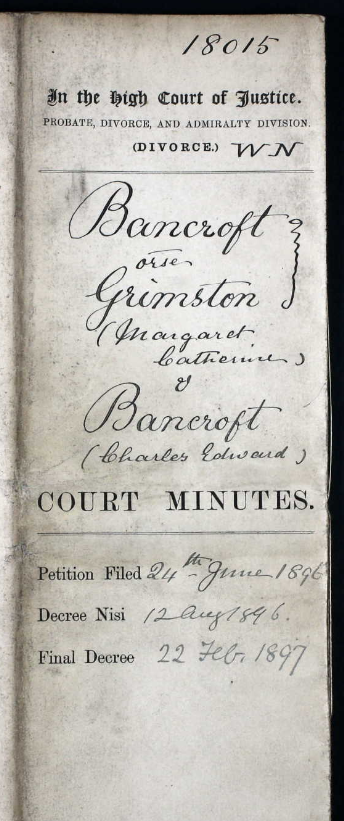 18015
In the High Court of Justice.
PROBATE, DIVORCE, AND ADMIRALTY DIVISION.
(DIVORCE.) WN
Bancroft
orse
Grimston
(Margaret
Catherine)
v
Bancroft
(Charles Edward)
COURT MINUTES.
Petition Filed 24th June 1896
Decree Nisi 12 Aug 1896.
Final Decree 22 Feb. 1897